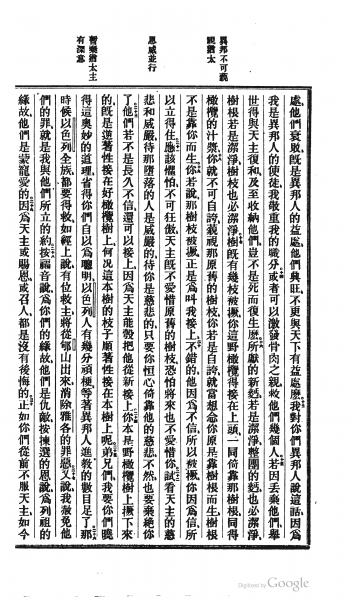 異邦不可藐
視猶太
恩威並行
暫棄猶太主
有深意
處、他們衰敗、旣是異邦人的益處、他們興旺、不更與天下有益處麽、我對你們異邦人說這話、因爲
我是異邦人的使徒、我敬重我的職分、或者可以激發骨肉之親、救他們幾個人、若因丟棄他們、舉
世得與天主復和、及至收納他們、豈不是死而復生麽、所獻的新麪、若是潔淨、整團的麪也必潔淨、
樹根若是潔淨、樹枝也必潔淨、樹旣有幾枝被撅、你這野橄欖得接在上頭、一同倚靠那樹根、同得
橄欖的汁漿、你就不可自誇、藐視那原舊的樹枝、你若是自誇、就當想念你原是靠樹根而生、樹根
不是靠你而生、你若說、那樹枝被撅、正是爲叫我接上、不錯的、他因爲不信、所以被撅、你因爲信、所
以立得住、應該懼怕、不可狂傲、天主旣不愛惜原舊的樹枝、恐怕將來也不愛惜你、試看天主的慈
悲和威嚴、待那墮落的人是威嚴的、待你是慈悲的、只要你恒心倚靠他的慈悲、不然、也要棄絕你
了、他們若不是長久不信、還可以接上、因爲天主能彀把他從新接上、你本是野橄欖樹上撅下來
的、旣是逆著性接在好橄欖樹上、何況這本樹的枝子、順著性接在本樹上呢、弟兄們、我要你們曉
得這奧妙的道理、省得你們自以爲聰明、以色列人有幾分頑梗、等著異邦人進教的數目足了、那
時候以色列全族都要得救、如經上說、有位救主、將從郇山出來、消除雅各的罪惡、又說、我赦免他
們的罪、就是我與他們所立的約、按福音說、爲你們的緣故、他們是仇敵、按揀選的恩說、爲列祖的
緣故、他們是蒙寵愛的、因爲天主或賜恩、或召人、都是沒有後悔的、正如你們從前不服天主、如今
Digitized by Google